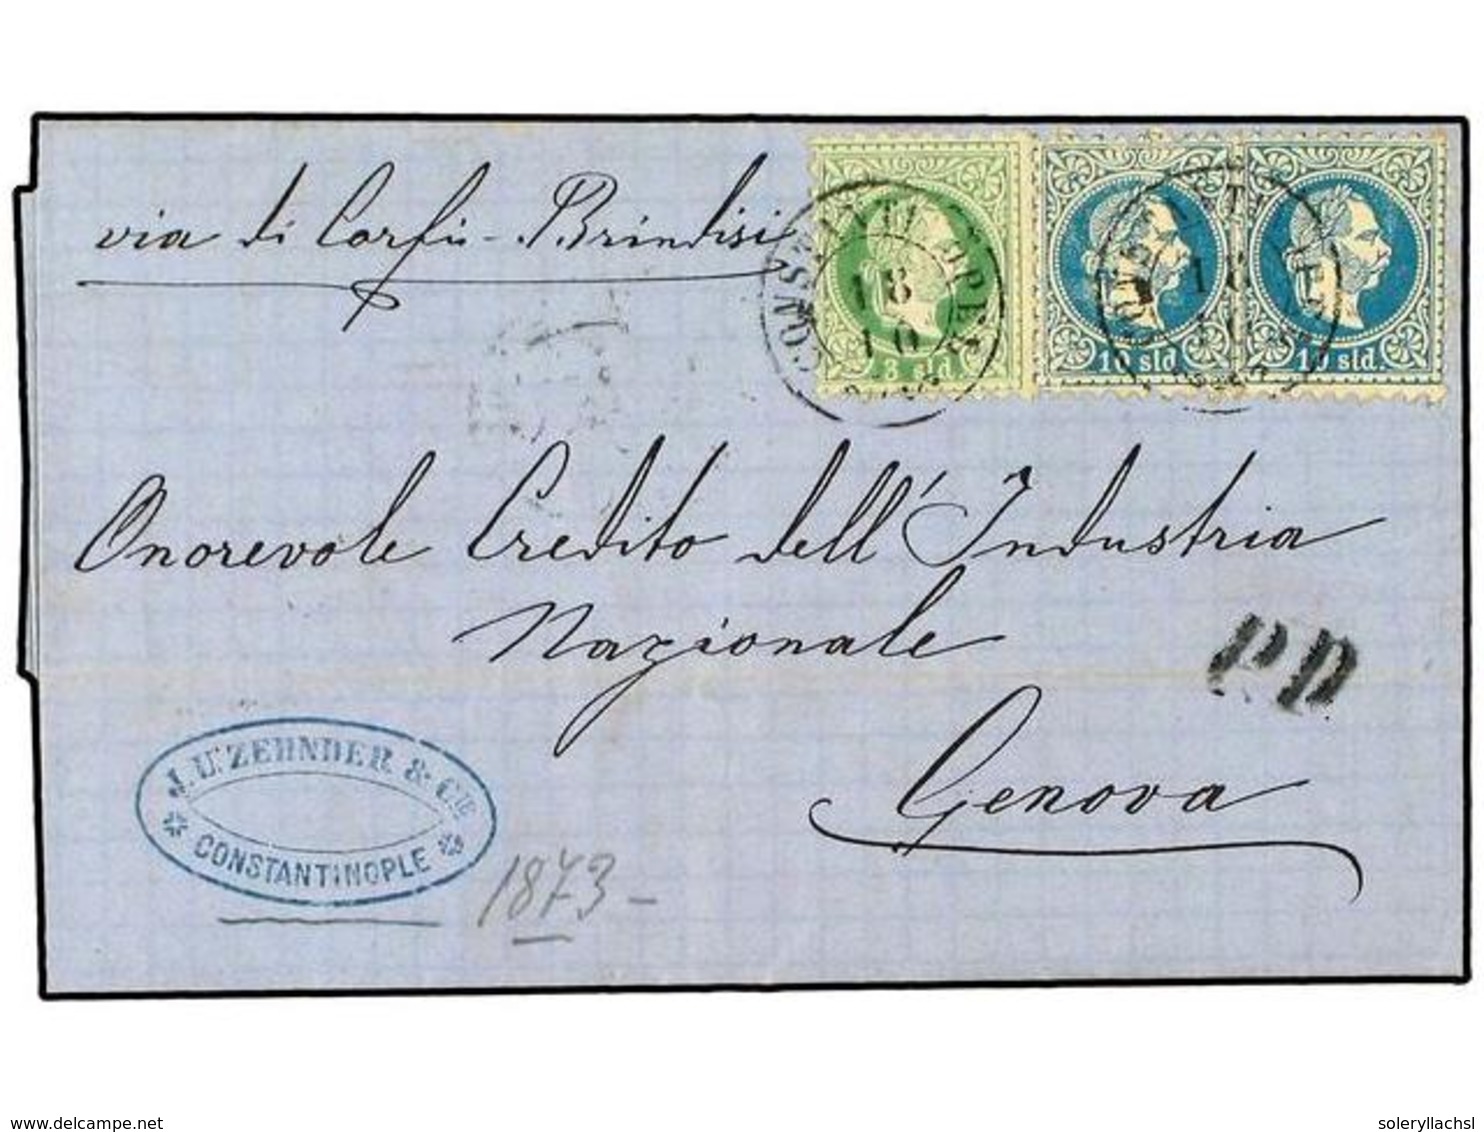 via di Corfù - Brindisi
CONSTANTINOPEL
18
10
3 sld.
18
10 sld.
10 sld.
Onorevole Credito dell'Industria
Nazionale
P.D.
Genova
J. U. ZEHNDER & Cie
CONSTANTINOPLE
1873 -
www.delcampe.net
soleryllachsl